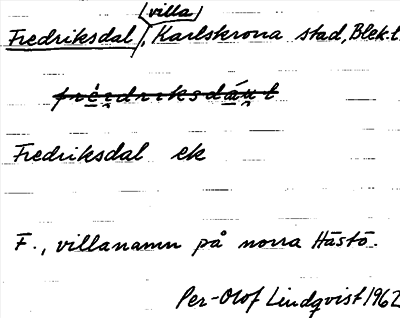 (villa)
Fredriksdal, Karlskrona stad, Blek.l.
Fredriksdal ek
F., villanamn på norra Hästö.
Per-Olof Lindqvist 1962